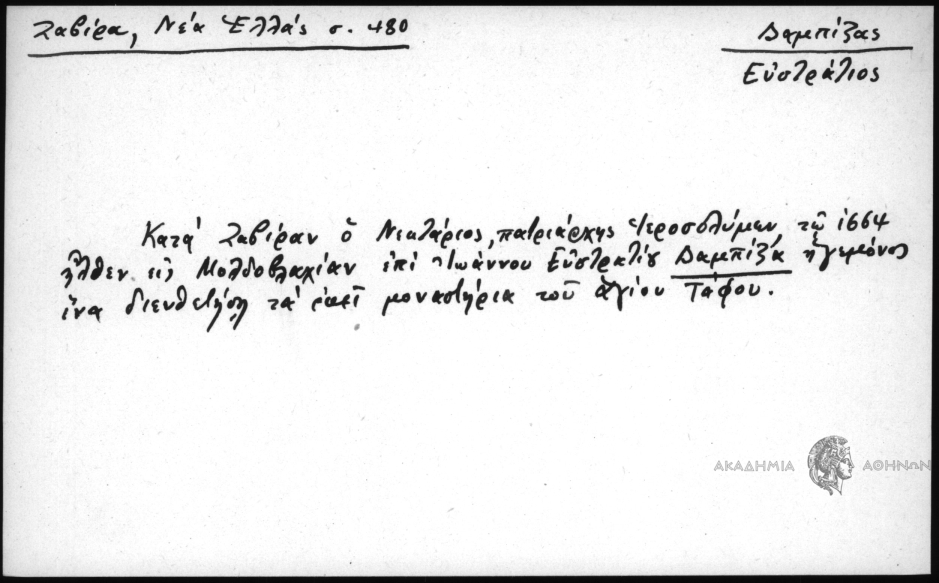 Ζαβίρα, Νέα Ἑλλάς σ. 480
Δαμπίζας
Εὐστράτιος
Κατά Ζαβίραν ὁ Νεκτάριος, πατριάρχης Ἱεροσολύμων, τῷ 1664
ἦλθεν εἰς Μολδοβλαχίαν ἐπί Ἰωάννου Εὐστρατίου Δαμπίζα ἡγεμόνος
ἵνα διευθετήσῃ τά ἐκεῖ μοναστήρια τοῦ ἁγίου Τάφου.
ΑΚΑΔΗΜΙΑ ΑΘΗΝΩΝ